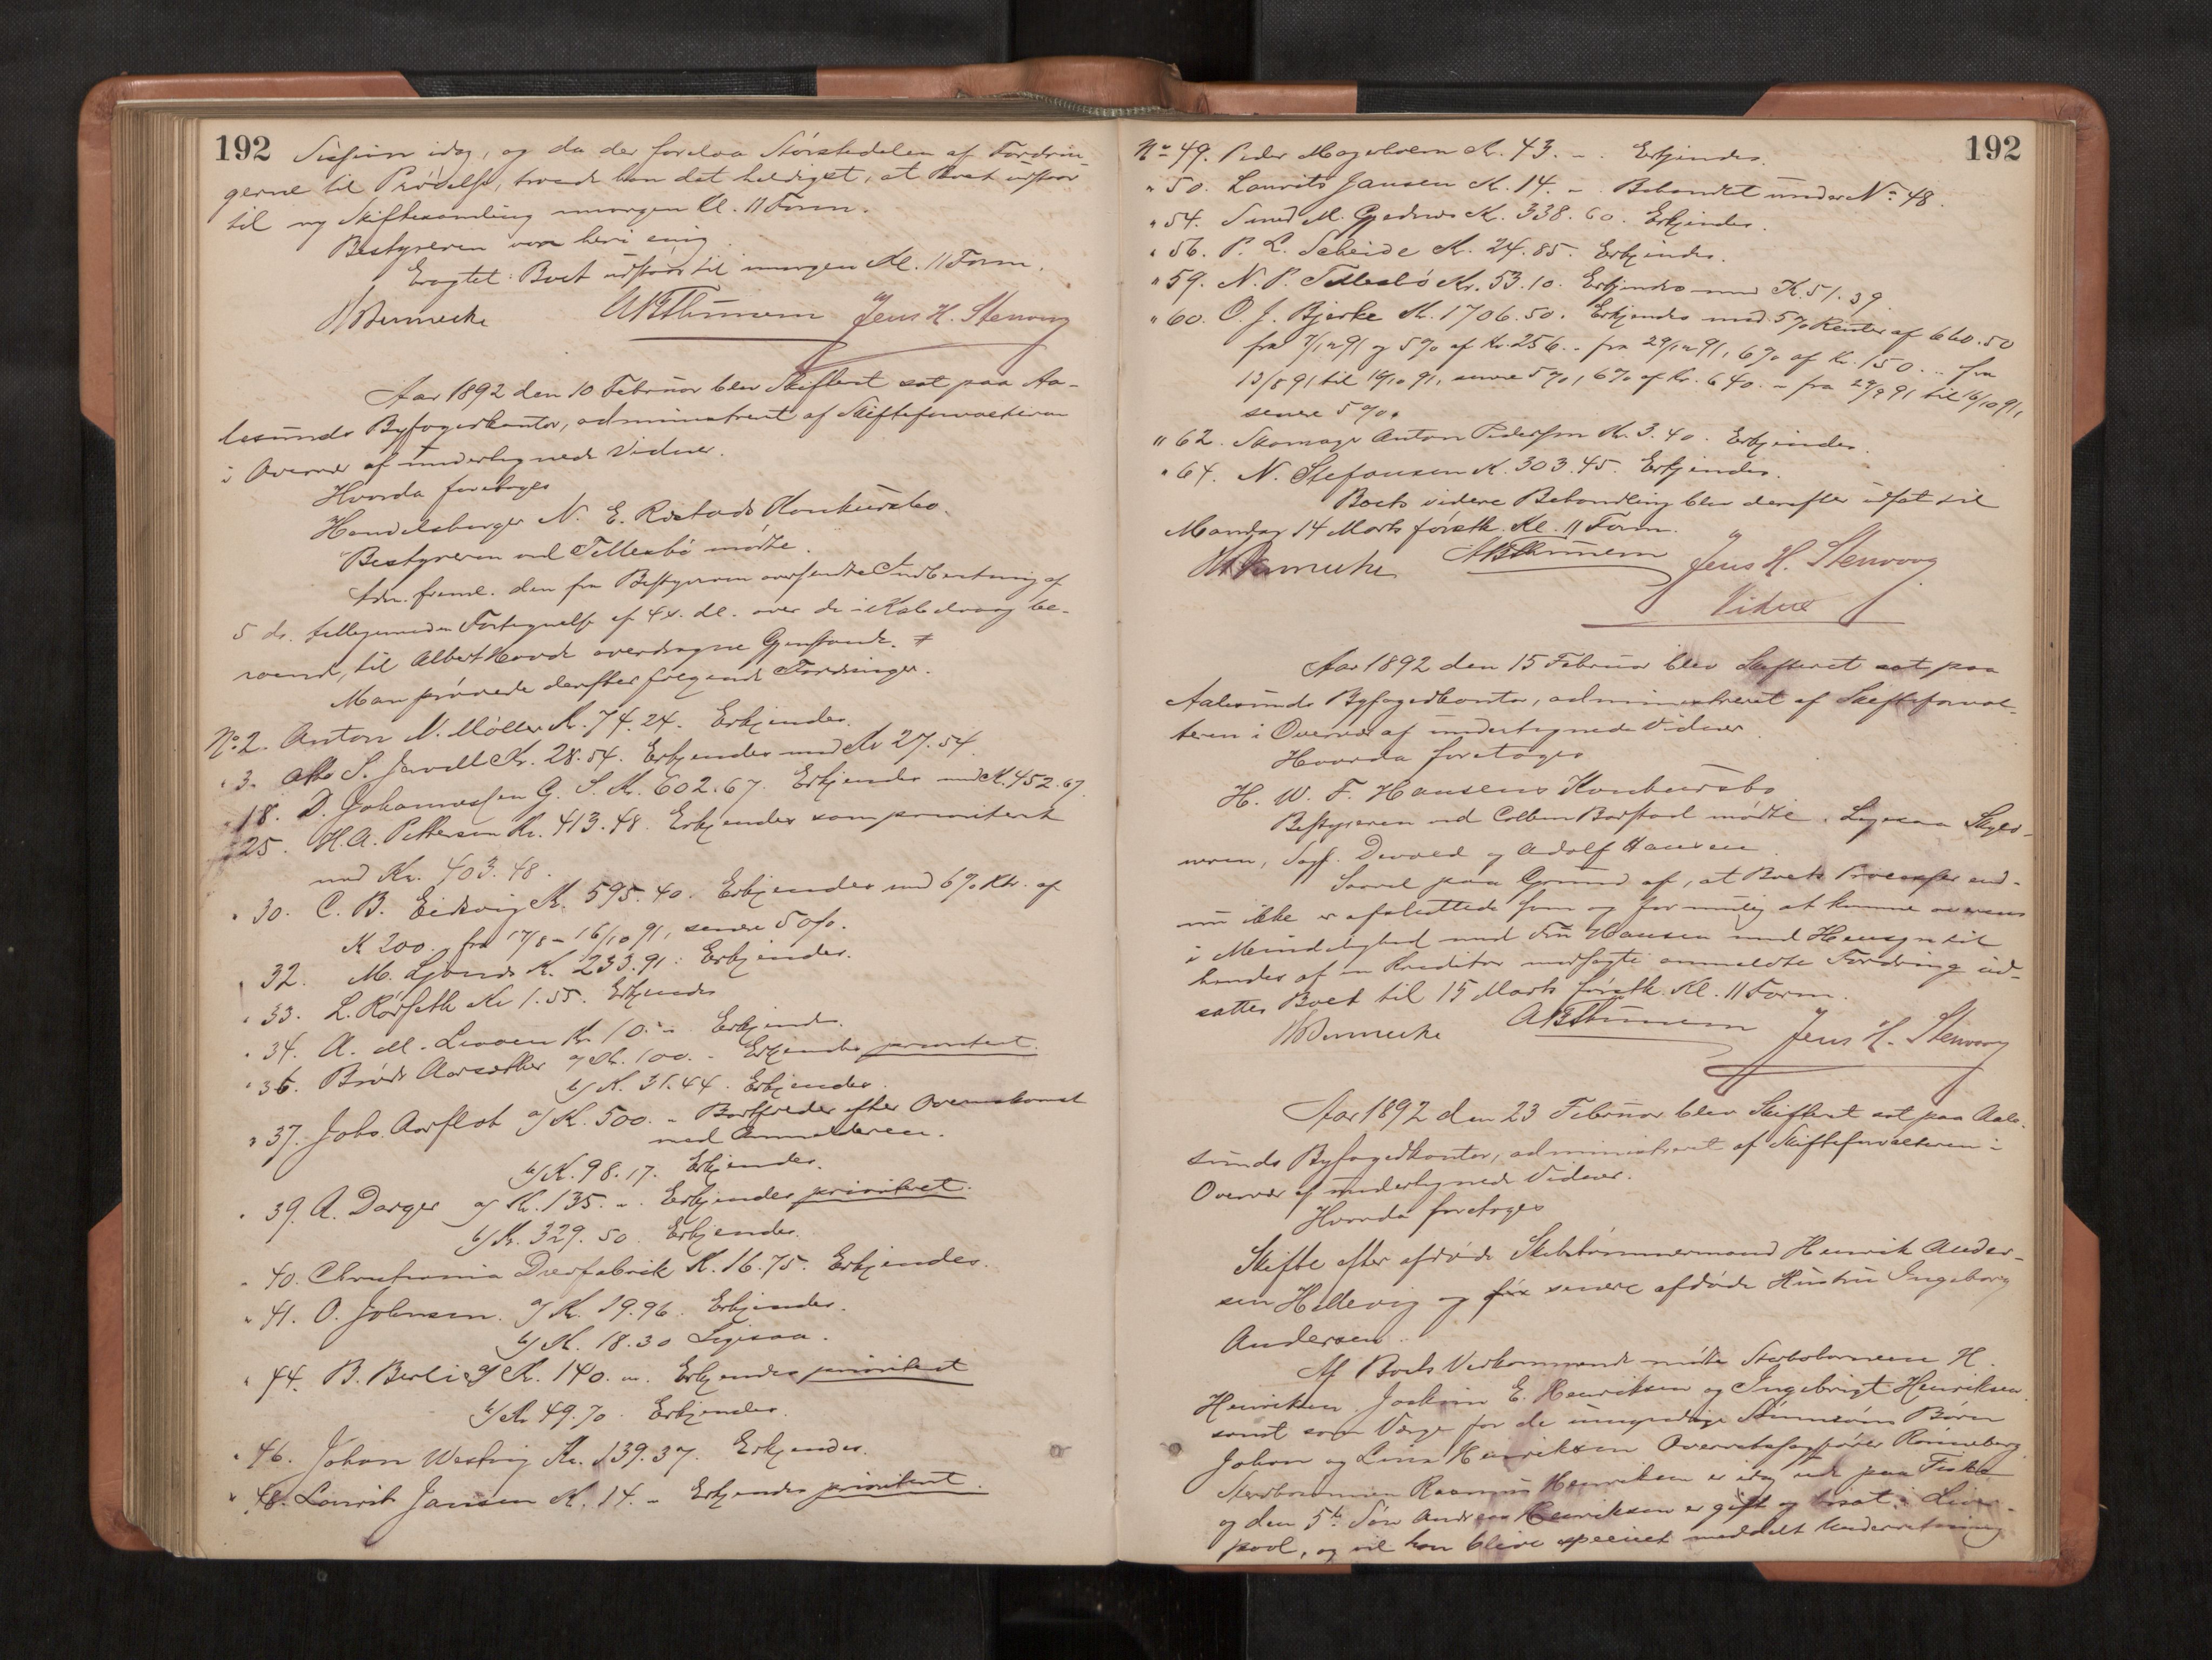 192
Sessionen idag, og da der forelaa Størstedelen af Fordrin-
gerne til Prøvelse, troede han det heldigst, at Boet udstaar
til ny Skiftesamling imorgen Kl. 11 Form.
Bestyreren var heri enig.
Eragtet: Boet udstaar til imorgen Kl. 11 Form.
Jens H. Stenvorg
Aar 1892 den 10 Februar blev Skifteret sat paa Aa-
lesunds Byfogedkontor, administreret af Skifteforvalteren
i Overvær af undertegnede Vidner.
Hvorda foretoges
Handelsborger N. E. Ristads Konkursbo.
Bestyreren ved Tillesbø mødte.
Adm. freml. den fra Bestyreren oversendte Indberetning af
5 ds. tilligemed en Fortegnelse af 4 s. M. over de i
til Albert Hovde overdragne Gjenstande. #
Man prøvede derefter følgende Fordringer.
No 2. Anton N. Møller Kr. 74.24. Erkjendes.
" 3. Otto S. Javell Kr. 28.54. Erkjendes med Kr 27.54.
" 18. D. Johannessen G. S. Kr. 602.67. Erkjendes med Kr. 452.67.
" 25. H. A. Pettersen Kr. 413.48. Erkjendes som prioriteret
med Kr. 403.48.
" 30. C. B. Eidsvig Kr. 595.40. Erkjendes med 6% Rtr. af
Kr 200. fra 17/8 - 16/10 91, senere 5 o/o.
" 32. M. Ljones Kr. 233.91. Erkjendes.
" 33. L. Rørseth Kr 1.55. Erkjendes
" 34. A. M. Liaaen Kr 10.- Erkjendes.
" 36. Brødr Aarsæther a/ Kr. 100. - Erkjendes prioriteret.
b/ Kr. 31.44. Erkjendes.
" 37. Johs. Aarflot a/ Kr. 500. - Bortfalder efter Overenskomst
med Anmelderen.
b/ Kr. 98.17. Erkjendes.
" 39. A. Darger a/ Kr. 135. -. Erkjendes prioriteret.
b/ Kr. 329.50. Erkjendes.
" 40. Christiania Dørfabrik Kr. 16.75. Erkjendes.
" 41. O. Johnsen. a/ Kr. 19.96. Erkjendes.
b/ Kr. 18.30 Ligesaa.
" 44. B. Berli a/ Kr. 140. -. Erkjendes prioriteret
b/ Kr 49.70. Erkjendes.
" 46. Johan Westvig Kr. 139.37. Erkjendes.
" 48. Laurits Jansen Kr. 14. - Erkjendes prioriteret.
192
No 49. Peder Mageholm Kr. 43. -. Erkjendes.
" 50. Laurits Jansen Kr. 14. -. Behandlet under No 48.
" 54. Smed M. Gjednes Kr. 338.60. Erkjendes.
" 56. P. L. Scheide Kr. 24.85. Erkjendes.
" 59. N. P. Tillesbø Kr. 53.10. Erkjendes med Kr. 51.39.
" 60. O. J. Bjerke Kr. 1706.50. Erkjendes med 5% Renter af 660.50
fra 7/12 91 og 5% af Kr. 256.- fra 29/12 91, 6% af Kr. 150.- fra
13/8 91 til 16/10 91, senere 5%, 6% af Kr. 640.- fra 29/9 91 til 16/10 91,
senere 5%.
" 62. Skomager Anton Pedersen Kr. 3.40. Erkjendes.
" 64. N. Stefansen Kr. 303.45. Erkjendes.
Boets videre Behandling blev derefter udsat til
Mandag 14 Marts førstk. Kl. 11 Form.
Jens H. Stenvorg
Vidne
Aar 1892 den 15 Februar blev Skifteret sat paa
Aalesunds Byfogedkontor, administreret af Skifteforval-
teren i Overvær af undertegnede Vidner.
Hvorda foretoges
H. W. F. Hansens Konkursbo
Bestyreren ved Colben Barstad mødte. Ligesaa Skyld-
neren, Sagf. Devold og Adolf Hansen.
Saavel paa Grund af, at Boets Processer end-
nu ikke er afsluttede som og for mulig at kunne overens
i Mindelighed med Fru Hansen med Hensyn til
hendes af en Kreditor modsagte anmeldte Fordring ud-
sattes Boet til 15 Marts førstk. Kl. 11 Form.
Jens H. Stenvorg
Aar 1892 den 23 Februar blev Skifteret sat paa Aale-
sunds Byfogedkontor, administreret af Skifteforvalteren i
Overvær af undertegnede Vidner.
Hvorda foretoges
Skifte efter afdøde Skibstømmermand Henrik Ander-
sen Hellevig og senere afdøde Hustru Ingeborg
Andersen.
Af Boets Vedkommende mødte Sterbosønnerne H.
Henriksen, Joakim E. Henriksen og Ingebrigt Henriksen
samt som Værge for de umyndige Sønnesøns Børn
Johan og Lina Henriksen Overretssagfører Rønneberg.
Sterbosønnen Rasmus Henriksen er idag ude paa Fiske
og den 5te Søn Andreas Henriksen er gift og bosat i Liver-
pool, og vil han blive specielt meddelt Underretning